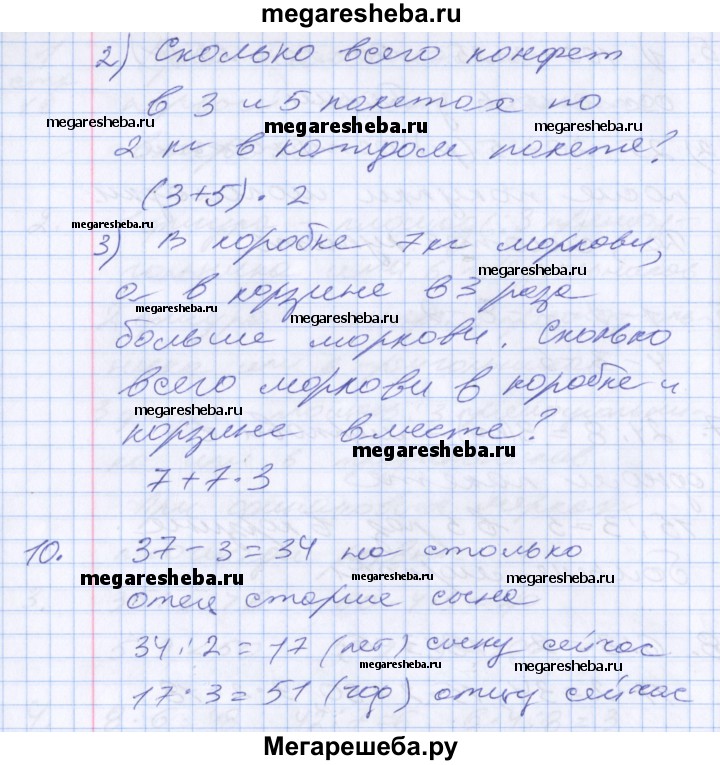 megaresheba.ru
2) Сколько всего конфет
в 3 и 5 пакетах по
megaresheba.ru
megaresheba.ru
megaresheba.ru
2 кг в каждом пакете?
(3+5)·2
megaresheba.ru
3) В коробке 7 кг моркови,
megaresheba.ru
а в корзине в 3 раза
megaresheba.ru
megaresheba.ru
больше моркови. Сколько
всего моркови в коробке и
megaresheba.ru
корзине вместе?
megaresheba.ru
7+7·3
10. 37-3=34 на столько
megaresheba.ru
megaresheba.ru
megaresheba.ru
отец старше сына
34:2=17 (лет) сыну сейчас
megaresheba.ru
megaresheba.ru
17·3=51 (год) отцу сейчас
Мегарешеба.ру